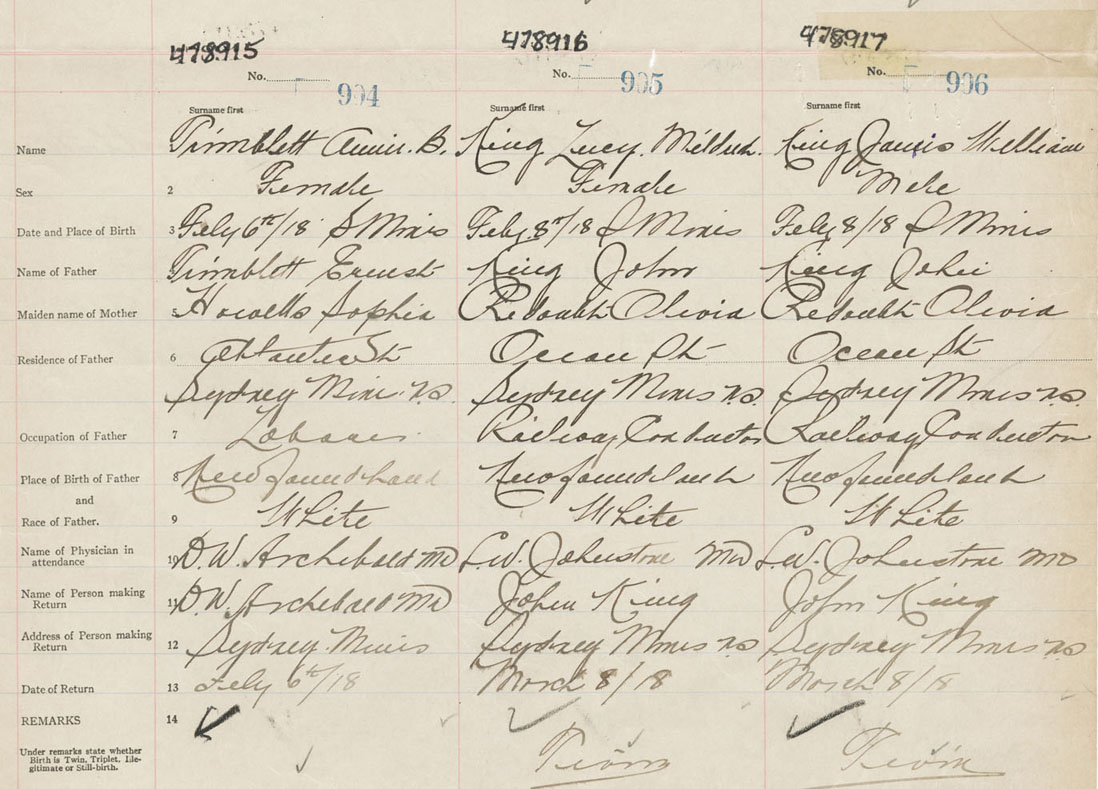 478915 478916 478917
No. 904 No. 905 No. 906
Surname first Surname first Surname first
Name Trimblett Annie. B. King Lucy. Mildred. King James William
Sex 2 Female Female Male
Date and Place of Birth 3 Feby 6th/18 S Mines Feby. 8th/18 S Mines Feby 8/18 S Mines
Name of Father Trimblett Ernest King John King John
Maiden name of Mother 5 Howells Sophia Olivia Olivia
Residence of Father 6 Atlantic St Ocean St Ocean St
Sydney Mines N.S. Sydney Mines N.S. Sydney Mines N.S.
Occupation of Father 7 Laborer Railway Conductor Railway Conductor
Place of Birth of Father 8 Newfoundland Newfoundland Newfoundland
and
Race of Father. 9 White White White
Name of Physician in attendance 10 D. W. Archibald MD L.W. Johnstone MD L.W. Johnstone MD
Name of Person making Return 11 D. W. Archibald MD John King John King
Address of Person making Return 12 Sydney Mines Sydney Mines NS Sydney Mines NS
Date of Return 13 Feby 6th/18 March 8/18 March 8/18
REMARKS 14
Under remarks state whether
Birth is Twin, Triplet, Ille-
gitimate or Still-birth.
Twin Twin